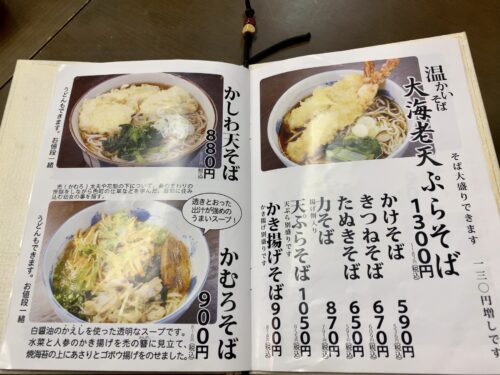 温かいそば
大海老天ぷらそば
1300円(税込)
そば大盛りできます 一三〇円増しです
かけそば 590円
きつねそば 670円
たぬきそば 650円
力そば 870円
揚げ餅入り
天ぷらそば 1050円
天ぷら別盛りです
かき揚げそば 900円
かき揚げ別盛りです
かしわ天そば
880円(税込)
うどんもできます。お値段一緒
かむろそば
900円(税込)
透きとおった
出汁が強めの
うまいスープ!
うどんもできます。お値段一緒
白醤油のかえしを使った透明なスープです。
水菜と人参のかき揚げを禿の簪に見立て、
焼海苔の上にあさりとゴボウ揚げをのせました。